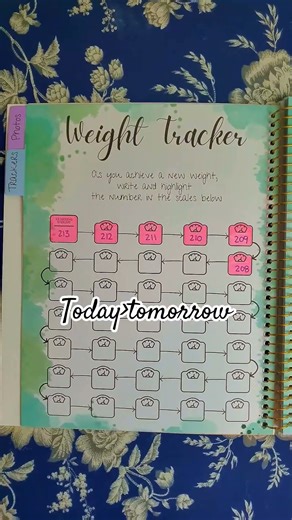 Weight Tracker
As you achieve a new weight,
write and highlight
the number in the scales below
213 212 211 210 209
208
Today>tomorrow
Photos
Trackers